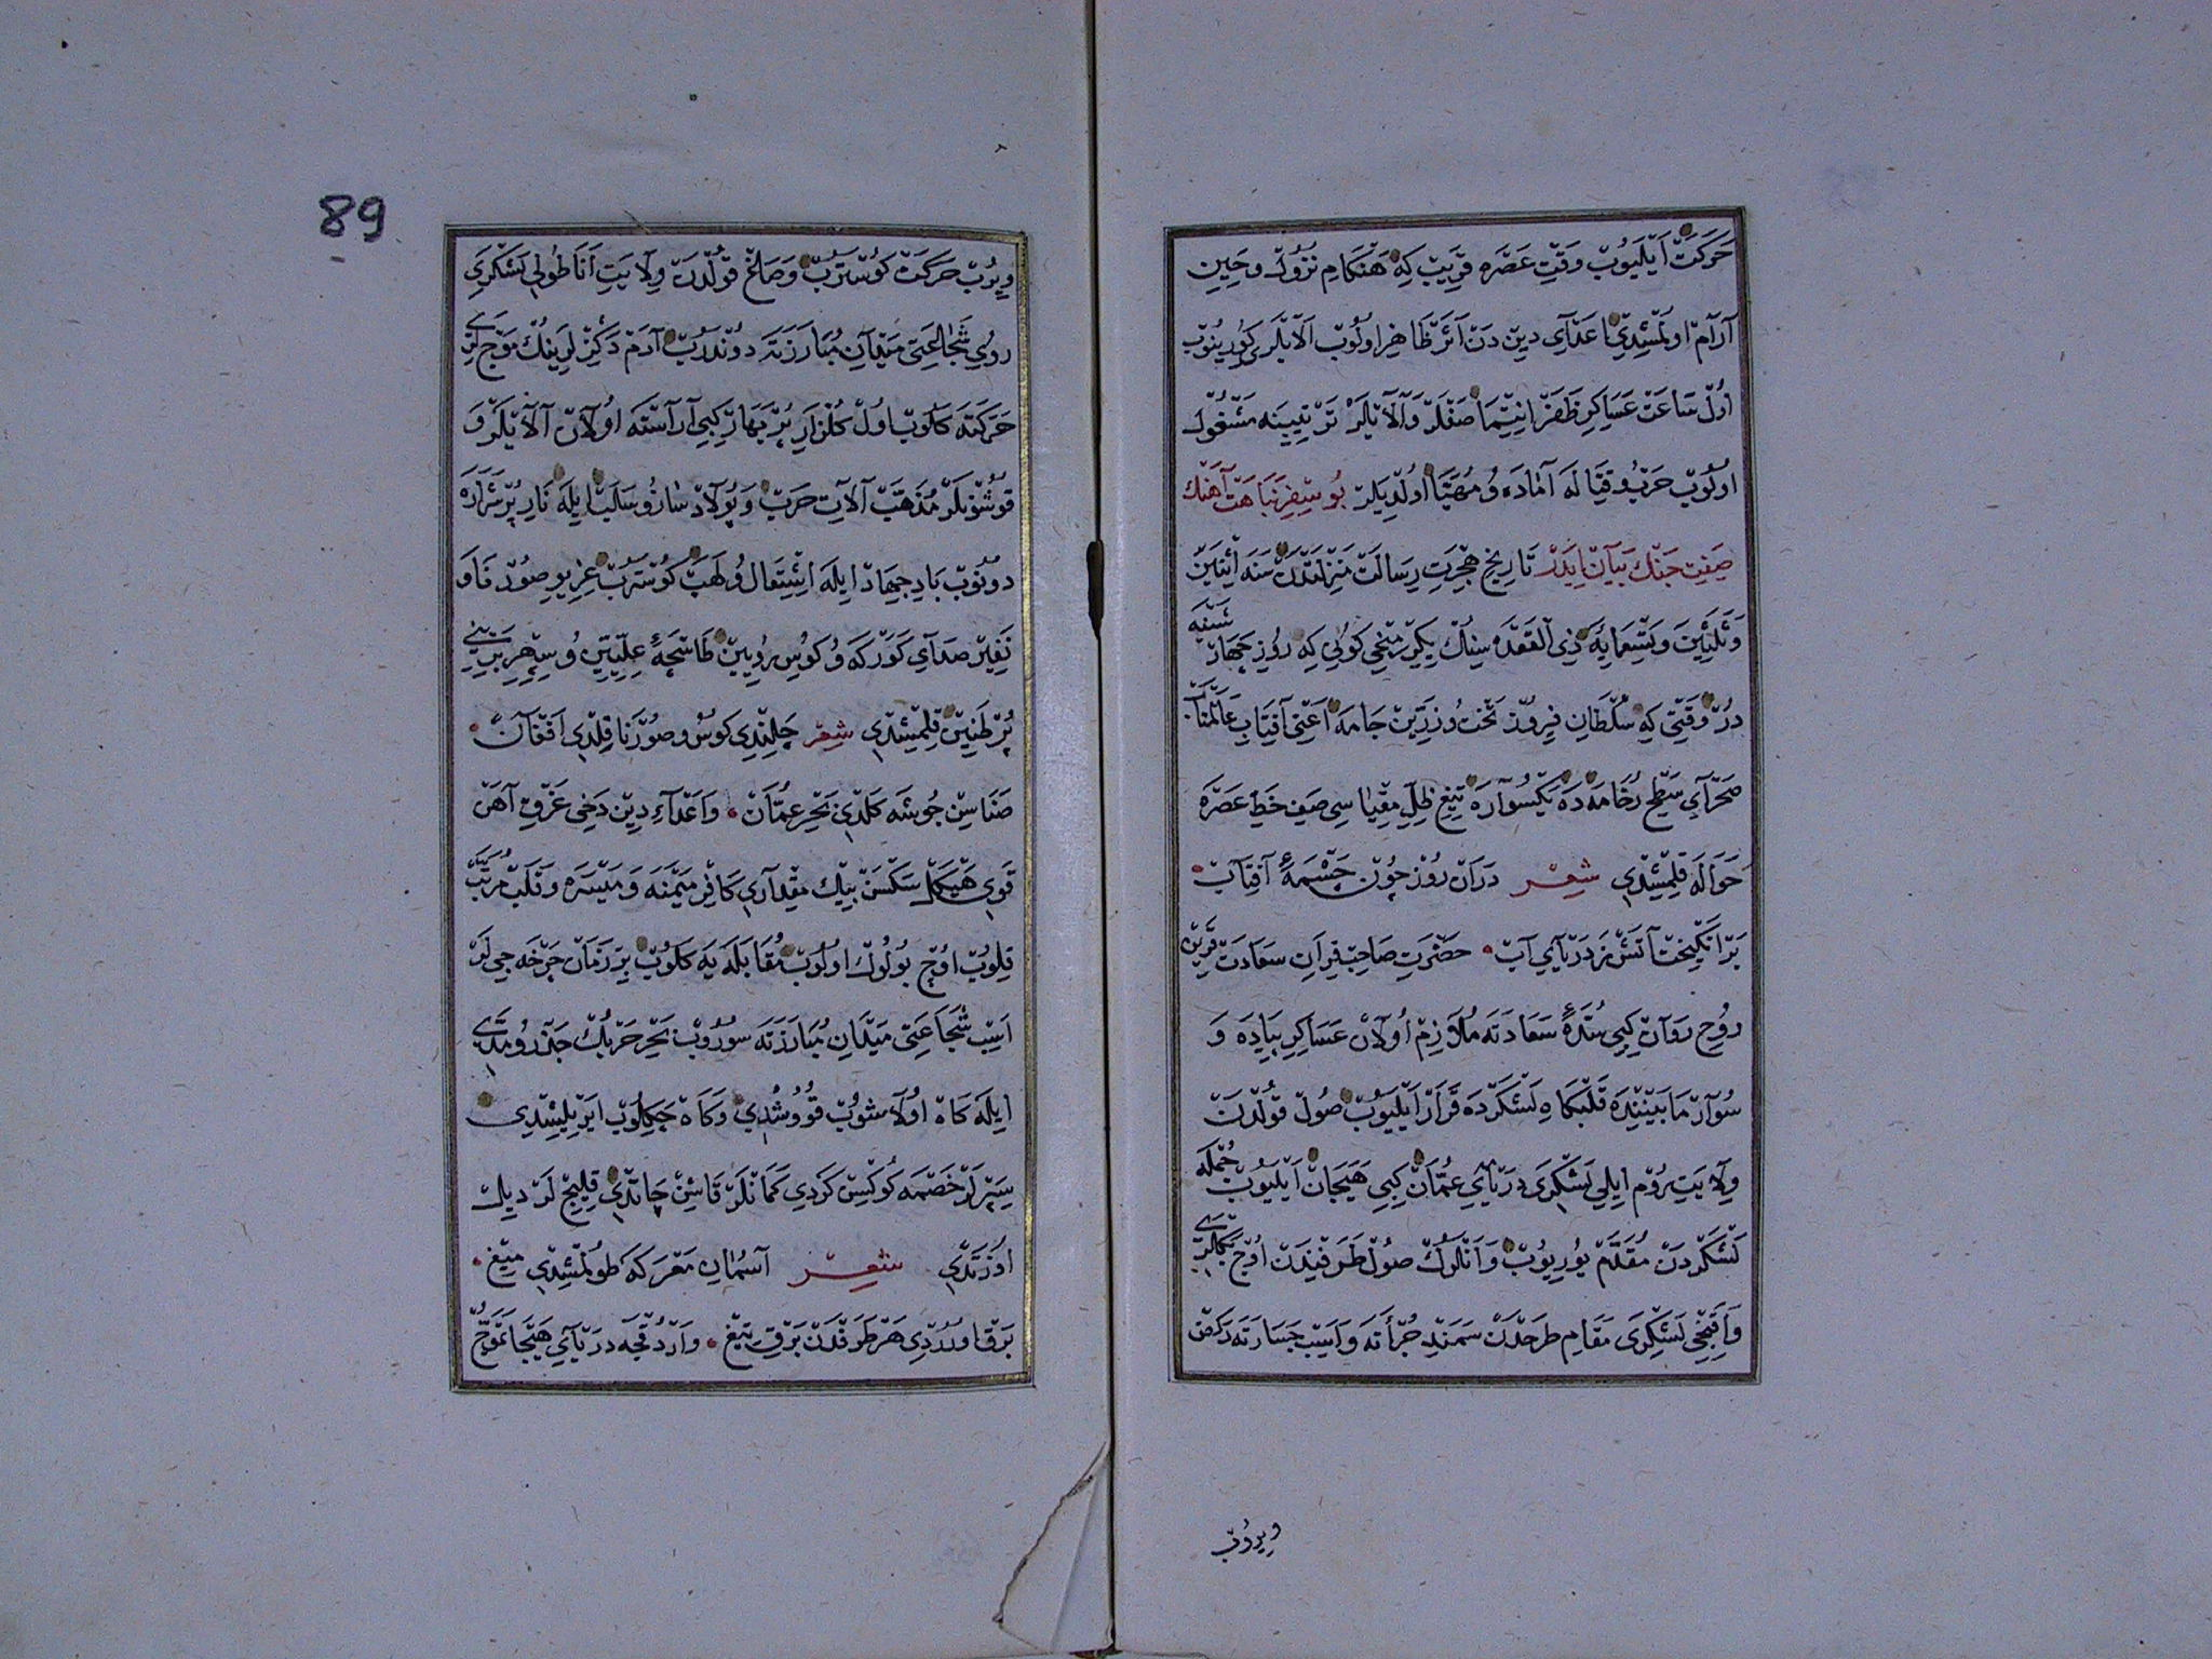 حَرَكَتْ اَيْلَيُوبْ وَقْتِ عَصْرَه قَرِيبْ كِه هَنْكَامِ نُزُولْ وحِينِ
آرَامْ اولْمِشِدِي اعْدَآىِ دِينْ دَنْ اَثَرْ ظَاهِرْ اولُوبْ آلَايْلَرِى كورينُوبْ
اولْ سَاعَتْ عَسَاكِرِ ظَفَرْ انتِمَا صَفْلَرْ وَآلَايْلَرْ تَرْتِيبِنَه مَشْغُولْ
اولُوبْ حَرْبُ وقِتَالَه آمَادَه وُ مُهَيَّا اولْدِيلَرْ بُو سِفِرِ نَبَاهَتْ آهَنْكْ
صِفَتِ جَنْكْ بَيَانْ ايدَرْ تَارِيخِ هِجْرَتِ رِسَالَتْ مَنْزِلَتْدَنْ سَنَه اثْنَيْنْ
وَثَلَثِينَ وَتِسْعَمِايَه ذِى القَعْدَه سِنُكْ يكِرْمِنْجِى كونِى كِه رُوزِ چهَارْ شَنْبَه
دُرْ وَقْتِى كِه سُلْطَانِ فِيرُوزْ تَخْتْ وُ زَرِّينْ جَامَه اَعْنِى آفِتَابِ عَالَمْتَابْ
صَحْرَآىِ سَطْحِ رُخَامَه دَه يَكْسُوَارَه تِيغِ ظِلِّ مِقْيَاسِى صَفِ خَطِّ عَصْرَه
حَوَالَه قِلْمِشِدِى شِعْر دَرَانْ رُوزْ چُونْ چَشْمَهٔ آفِتَابْ
بَرْ انْكِيخْتْ آتَشْ زِ دَرْيَاىِ آبْ حَضْرَتِ صَاحِبْ قِرَانِ سَعَادَتْ قَرِينْ
رُوحِ رَوَانْ كِبِى سُدَّهٔ سَعَادَتَه مُلَازِمْ اُولَانْ عَسَاكِرِ پِيَادَه وَ
سُوَارْ مَابَيْنِنْدَه قَلْبْكَاهِ لَشْكَرْدَه قَرَارْ اَيْلَيُوبْ صُولْ قولْدَنْ
وِلَايَتِ رُومْ ايلِى لَشْكَرِى دَرْيَاىِ عُمَّانْ كِبِى هَيَجَانْ اَيْلَيُوبْ جُمْلَه
لَشْكَرْدَنْ مُقَدَّمْ يُورِيُوبْ وَانْلَرُكْ صُولْ طَرَفِنْدَنْ اوجْ بَكْلَرِى
وَاقِنْجِى لَشْكَرِى مَقَامِ طرَحْدَنْ سَمَنْدِ جُرْأَتَه وَاَسْبِ جَسَارَتَه رَكْضْ
ويرُوبْ
89
ويرُبْ حَرَكَتْ كوسْتَرُبْ وَصَاغْ قولْدَنْ وِلَايَتِ اَنَاطُولِى لَشْكَرِى
رُوىِ شَجَاعَتِى مَيْدَانِ مُبَارَزَتَه دوندَرُبْ آدَمْ دَكِزْ لَرِينُكْ مَوْجْ لَرِى
حَرَكَتَه كَلُوبْ اولْ كُلْزَارِ پُرْ بَهَارْ كِبِى آرَاسْتَه اُولَانْ آلَايْلَرْ وَ
قوشُونْلَرْ مُذَهَّبْ آلَاتِ حَرْبْ وَپُولَادْ سَازُ وسَلَبْ ايلَه نَارِ پُرْ شَرَارَه
دونُوبْ بَادِ جِهَادْ ايلَه اشْتِعَالُ ولَهَبْ كوسْتَرُبْ غِرِيوِ صُورْ فَاوَ
نَفِيرْ صَدَآىِ كَوَرْكَه وُ كوسِ رُويِينْ طَاسْچَهٔ عِلِّيِّينِ وُ سِپهْرِ بَرِينِى
پُرْ طَنِينْ قِلْمِشِدِى شِعْر چَلِنْدِى كوسْ وصُورْنَا قِلْدِى اَفْغَانْ
صَنَاسِنْ جُوشَه كَلْدِى بَحْرِ عُمَّانْ وَاَعْدَآءِ دِينْ دَخِى غَرْقِ آهَنْ
قَوِى هَيْكَلْ سَكْسَنْ بِيكْ مِقْدَارِى كَافِرْ مَيْمَنَه وَ مَيْسَرَه وقَلْبْ مُرَتَّبْ
قِلُوبْ اوچْ بُولُوكْ اولُوبْ مُقَابَلَه يَه كَلُوبْ بِرْ زَمَانْ چَرْخَه جِى لَرْ
اَسْبِ شُجَاعَتِى مَيْدَانِ مُبَارَزَتَه سورُوبْ بَحْرِ حَرْبُكْ جَزْرُ ومَدِّى
ايلَه كَاهْ اولَاشُوبْ قووُشْدِى وَكَاهْ چَكِلُوبْ ايَرْيلِشْدِى
سِپَرْلَرْ خَصْمَه كوكْسْ كَرْدِى كَمَانْلَرْ قَاشِنْ چَاتْدِى قِلِيجْ لَرْ دِيلْ
اوزَتْدِى شِعْر آسْمَانِ مَعْرَكَه طولْمِشْدِى مِيغْ
بَرْق اورُرْدِى هَرْ طَرَفْدَنْ بَرْقِ تِيغْ وَارْدُقْجَه دَرْيَاىِ هَيْجَا تَمَوُّجْ